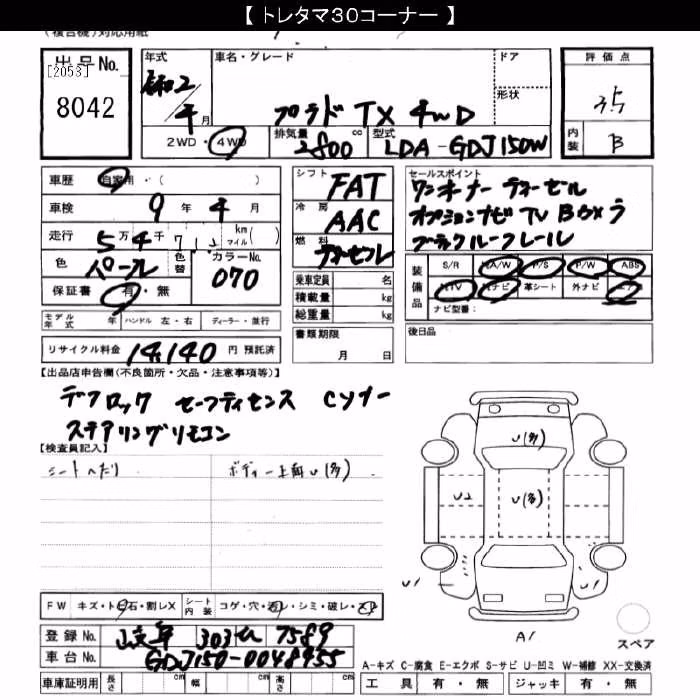 【 トレタマ30コーナー 】
(複合機)対応用紙
出品No.
[2053]
8042
年式
令和2年 月
車名・グレード
プラド TX 4WD
ドア
形状
評価点
3.5
内装
B
2WD・4WD
排気量
2800 cc
型式
LDA-GDJ150W
車歴 自家用・( )
車検 9年4月
走行 5万4千 km マイル( )
色 パール
色替
カラーNo.
070
保証書 有・無
シフト FAT
冷房 AAC
燃料 ディーゼル
乗車定員 名
積載量 kg
総重量 kg
セールスポイント
ワンオーナー ディーゼル
オプションナビ TV Bカメラ
ブラックルーフレール
装備品
S/R A/W P/S P/W ABS
TV ナビ 革シート 外ナビ エアB
ナビ型番:
モデル年式 年 ハンドル 左・右 ディーラー・並行
リサイクル料金 14,140 円 預託済
書類期限
月 日
後日品
【出品店申告欄(不良箇所・欠品・注意事項等)】
デフロック セーフティセンス Cソナー
ステアリングリモコン
【検査員記入】
シートへたり
ボディー上面U(多)
U(多)
U2
U(多)
U1
U1
A1
スペア
FW キズ・トビ石・割レX
シート内装 コゲ・穴・汚レ・シミ・破レ・スレ
登録No. 岐阜 303 せ 7589
車台No. GDJ150-0048955
車庫証明用 長さ cm 幅 cm 高さ cm
A-キズ C-腐食 E-エクボ S-サビ U-凹ミ W-補修 XX-交換済
工具 有・無 ジャッキ 有・無